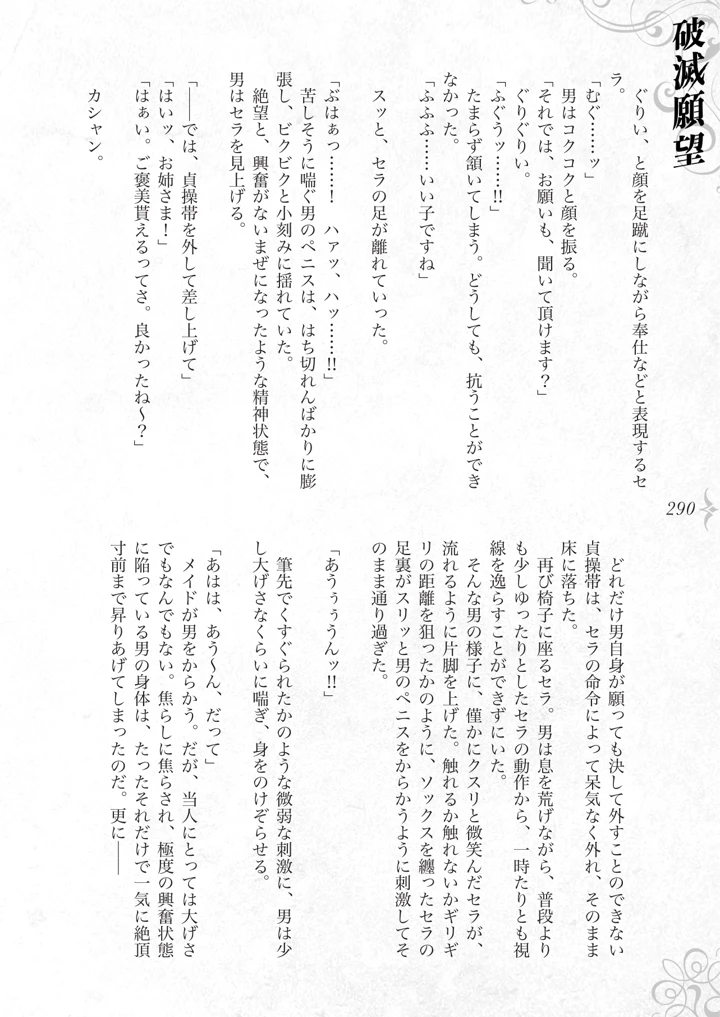 破滅願望
　ぐりぃ、と顔を足蹴にしながら奉仕などと表現するセ
ラ。
「むぐ……ッ」
　男はコクコクと顔を振る。
「それでは、お願いも、聞いて頂けます？」
　ぐりぐりぃ。
「ふぐうッ……!!」
　たまらず頷いてしまう。どうしても、抗うことができ
なかった。
「ふふふ……いい子ですね」
　スッと、セラの足が離れていった。
「ぶはぁっ……！　ハァッ、ハッ……!!」
　苦しそうに喘ぐ男のペニスは、はち切れんばかりに膨
張し、ビクビクと小刻みに揺れていた。
　絶望と、興奮がないまぜになったような精神状態で、
男はセラを見上げる。
「――では、貞操帯を外して差し上げて」
「はいッ、お姉さま！」
「はぁい。ご褒美貰えるってさ。良かったね〜？」
　カシャン。
290
　どれだけ男自身が願っても決して外すことのできない
貞操帯は、セラの命令によって呆気なく外れ、そのまま
床に落ちた。
　再び椅子に座るセラ。男は息を荒げながら、普段より
も少しゆったりとしたセラの動作から、一時たりとも視
線を逸らすことができずにいた。
　そんな男の様子に、僅かにクスリと微笑んだセラが、
流れるように片脚を上げた。触れるか触れないかギリギ
リの距離を狙ったかのように、ソックスを纏ったセラの
足裏がスリッと男のペニスをからかうように刺激してそ
のまま通り過ぎた。
「あうぅぅうんッ!!」
　筆先でくすぐられたかのような微弱な刺激に、男は少
し大げさなくらいに喘ぎ、身をのけぞらせる。
「あはは、あう〜ん、だって」
　メイドが男をからかう。だが、当人にとっては大げさ
でもなんでもない。焦らしに焦らされ、極度の興奮状態
に陥っている男の身体は、たったそれだけで一気に絶頂
寸前まで昇りあげてしまったのだ。更に――